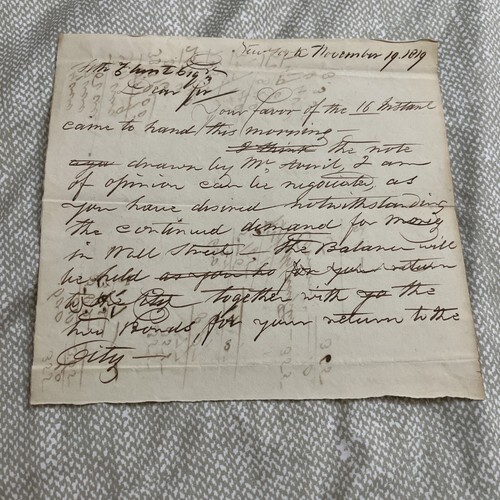 New York November 19. 1819
Dear Sir
Your Favor of the 16 Instant
came to hand this morning
I think the note
drawn by Mr Averil, I am
of opinion can be negociated, as
you have desired notwithstanding
the continued demand for money
in Wall Street, the Balance will
be held as you ho for your return
to the City together with yo the
two Bonds, for your return to the
City —